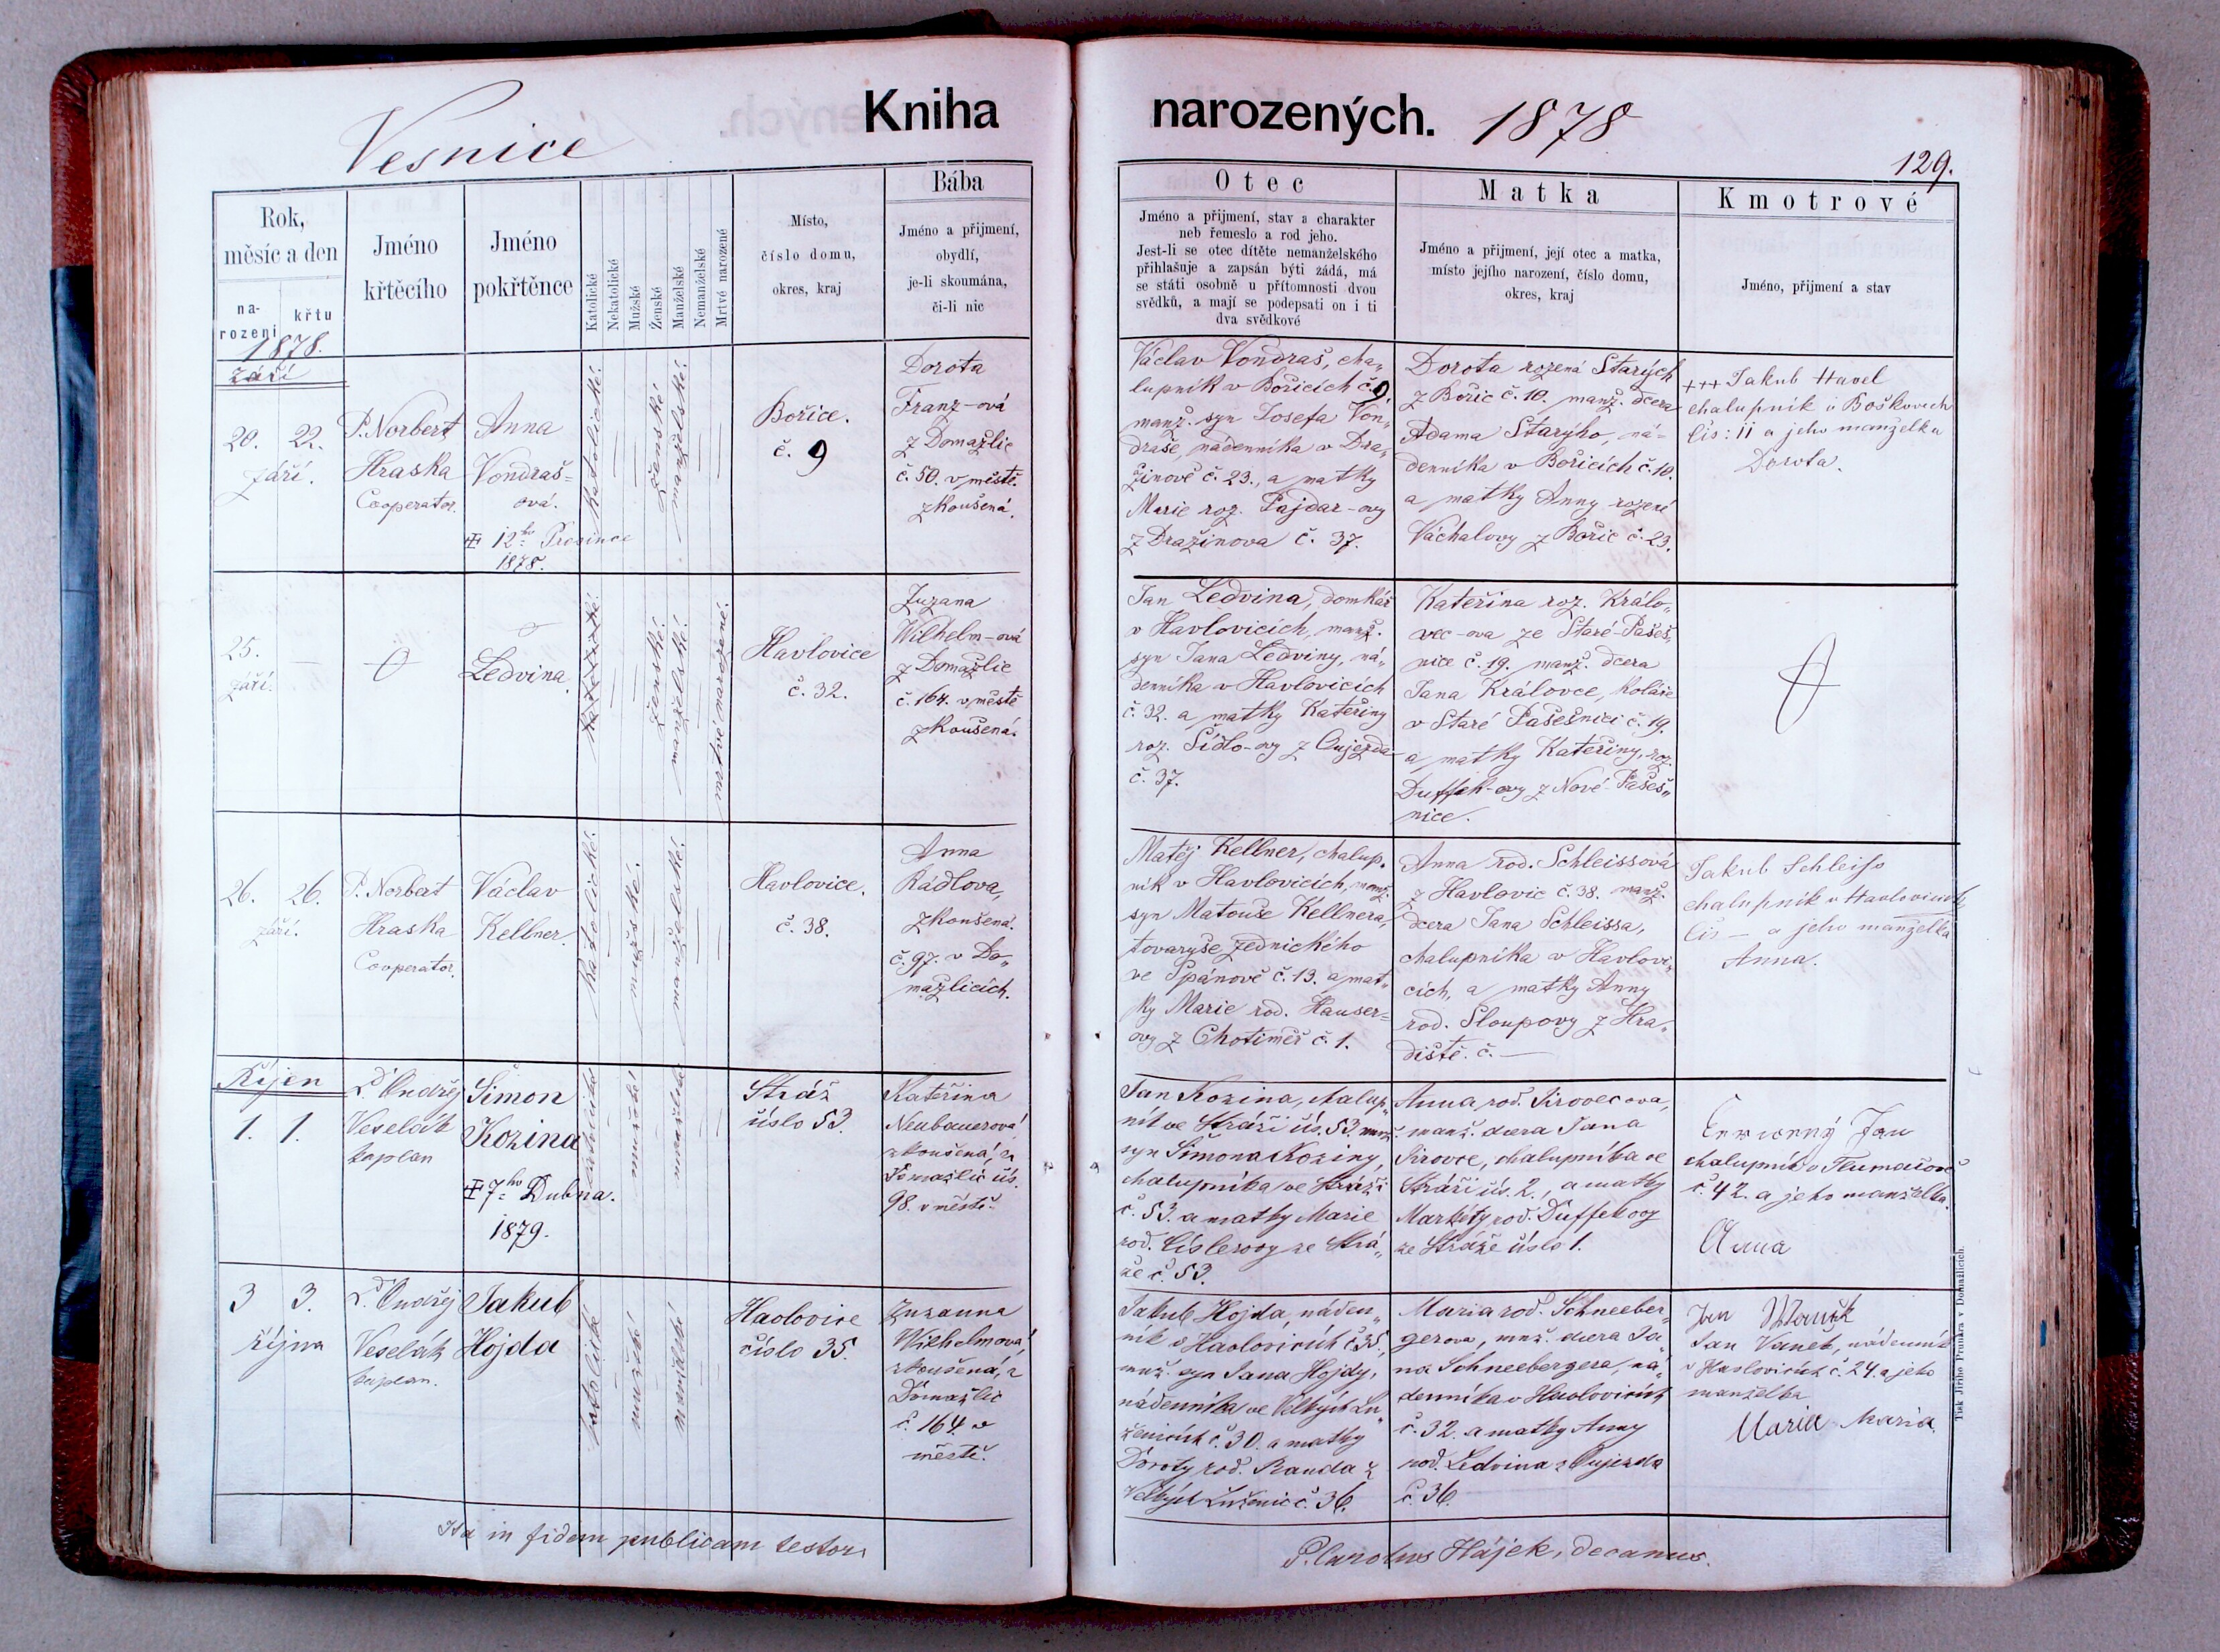 Vesnice
Kniha
narozených. 1878
129.
Rok,
měsíc a den
na-
rození
křtu
Jméno
křtěcího
Jméno
pokřtěnce
Katolické
Nekatolické
Mužské
Ženské
Manželské
Nemanželské
Mrtvé narozené
Místo,
číslo domu,
okres, kraj
Bába
Jméno a přijmení,
obydlí,
je-li skoumána,
či-li nic
Otec
Jméno a přijmení, stav a charakter
neb řemeslo a rod jeho.
Jest-li se otec dítěte nemanželského
přihlašuje a zapsán býti žádá, má
se státi osobně u přítomnosti dvou
svědků, a mají se podepsati on i ti
dva svědkové
Matka
Jméno a přijmení, její otec a matka,
místo jejího narození, číslo domu,
okres, kraj
Kmotrové
Jméno, přijmení a stav
1878.
Září
20. 22.
září.
P. Norbert
Hraska
Cooperator.
Anna
Vondraš=
ová.
12ho Prosince
1878.
katolické.
ženské
manželské.
Bořice.
č. 9
Dorota
Franz-ová
z Domažlic
č. 50. v městě.
zkoušená.
Václav Vondraš, cha„
lupník v Bořicích č. 9.
manž. syn Josefa Von„
draše, nádenníka v Dra„
žinově č. 23., a matky
Marie roz. Pajdar-ovy
z Dražinova č. 37.
Dorota rozená Starých
z Bořic č. 10. manž. dcera
Adama Starýho, ná=
denníka v Bořicích č. 10.
a matky Anny rozené
Váchalovy z Bořic č. 23.
+++ Jakub Havel
chalupník v Boškovech
čis: 11 a jeho manželka
Dorota.
25.
září.
—
Ledvina.
katolické.
ženské.
manželské.
mrtvé narozené.
Havlovice
č. 32.
Zuzana
Wilhelm-ová
z Domažlic
č. 164. v městě
zkoušená.
Jan Ledvina, domkář
v Havlovicích, manž.
syn Jana Ledviny, ná„
denníka v Havlovicích
č. 32. a matky Kateřiny
roz. Šídlo-ovy z Oujezda
č. 37.
Kateřina roz. Králo„
vec-ova ze Staré-Pašeš„
nice č. 19. manž. dcera
Jana Královce, koláře
v Staré Pašešnici č. 19.
a matky Kateřiny, roz.
Duffek-ovy z Nové-Pašeš„
nice.
26. 26.
září.
P. Norbert
Hraska
Cooperator.
Václav
Kellner.
katolické.
mužské.
manželské.
Havlovice.
č. 38.
Anna
Rádlova,
zkoušená.
č. 97. v Do„
mažlicích.
Matěj Kellner, chalup„
ník v Havlovicích, manž.
syn Matouše Kellnera,
tovaryše zednického
ve Spánově č. 13. a mat„
ky Marie rod. Hauser=
ovy z Chotiměř č. 1.
Anna rod. Schleissová
z Havlovic č. 38. manž.
dcera Jana Schleissa,
chalupníka v Havlovi„
cích, a matky Anny
rod. Sloupovy z Hra„
diště. č. —
Jakub Schleiss
chalupník v Havlovicích
čis — a jeho manželka
Anna.
Říjen
1. 1.
P. Ondřej
Veselák
kaplan
Šimon
Kozina
7ho Dubna.
1879.
katolické
mužské
manželské
Stráž
číslo 53.
Kateřina
Neubauerová
zkoušená, z
Domažlic čís.
98. v městě.
Jan Kozina, chalup„
ník ve Stráži čís. 53. manž.
syn Šimona Koziny,
chalupníka ve Stráži
č. 53. a matky Marie
rod. Císlerovy ze Strá„
že č. 53.
Anna rod. Sirovcova,
manž. dcera Jana
Sirovce, chalupníka ve
Stráži čís. 2., a matky
Markéty rod. Duffekovy
ze Stráže číslo 1.
Jan
chalupník v Tlumačově
č. 42. a jeho manželka.
Anna
3 3.
října
P. Ondřej
Veselák
kaplan.
Jakub
Hojda
katolické
mužské
manželské
Havlovice
číslo 35.
Zuzanna
Wilhelmová,
zkoušená, z
Domažlic
č. 164. v
městě.
Jakub Hojda, náden„
ník v Havlovicích č. 35,
manž. syn Jana Hojdy,
nádenníka ve Velkých Lu„
ženicích č. 30. a matky
Doroty rod. Randa z
Velkých Luženic č. 36.
Maria rod. Schneeber„
gerova, manž. dcera Ja„
na Schneebergera, ná„
denníka v Havlovicích
č. 32. a matky Anny
rod. Ledvina z Oujezda
č. 36.
Jan Waněk
Jan Vaněk, nádenník
v Havlovicích č. 24. a jeho
manželka
Marie Maria.
Ita in fidem publicam testor
P. Carolus Hájek, decanus.
Tisk Jiřího Prunara v Domažlicích.